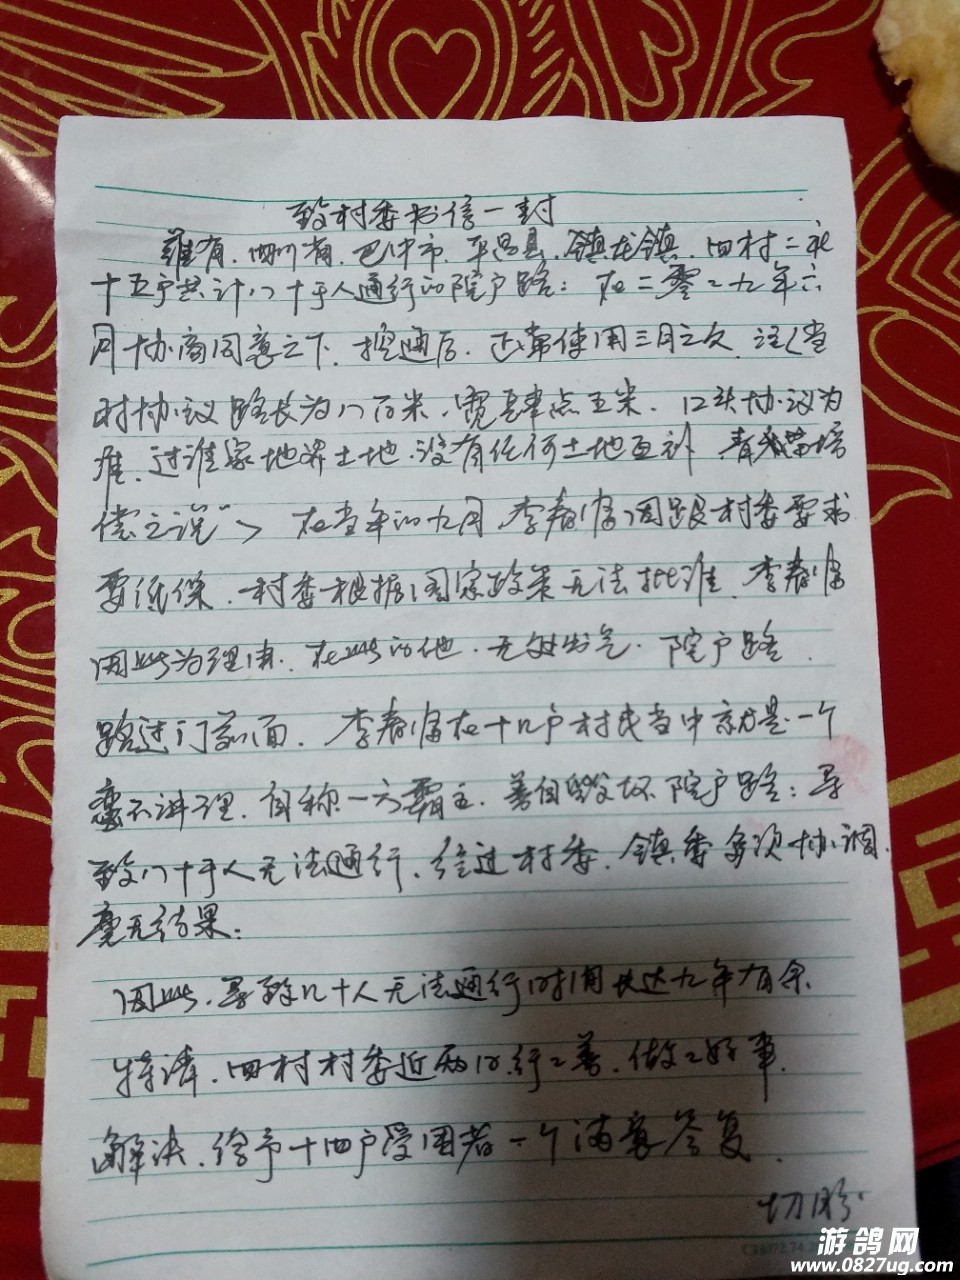 致村委书信一封
兹有.四川省.巴中市.平昌县.镇龙镇.四村二社
十五户共计八十于人通行的院户路：在二零一九年六
月十协商同意之下.挖通后.正常使用三月之久.注《当
时协议路长为八百米.宽肆点五米.口头协议为
准.过谁家地界土地.没有任何土地互补 青苗培
偿之说"》在当年的九月.李春 因跟村委要求
要低保.村委根据国家政策无法批准.李春
因此为理由.在此的他.无处出气.院户路.
路过门前面.李春 在十几户村民当中就是一个
蛮不讲理.自称一方霸主.善自毁坏院户路：导
致八十于人无法通行.经过村委.镇委多须协调.
毫无结果：
因此.导致几十人无法通行时间长达九年有余.
特请.四村村委近两日.行行善.做做好事.
解决.给予十四户受困者一个满意答复.
切盼.
游鸽网
www.0827ug.com